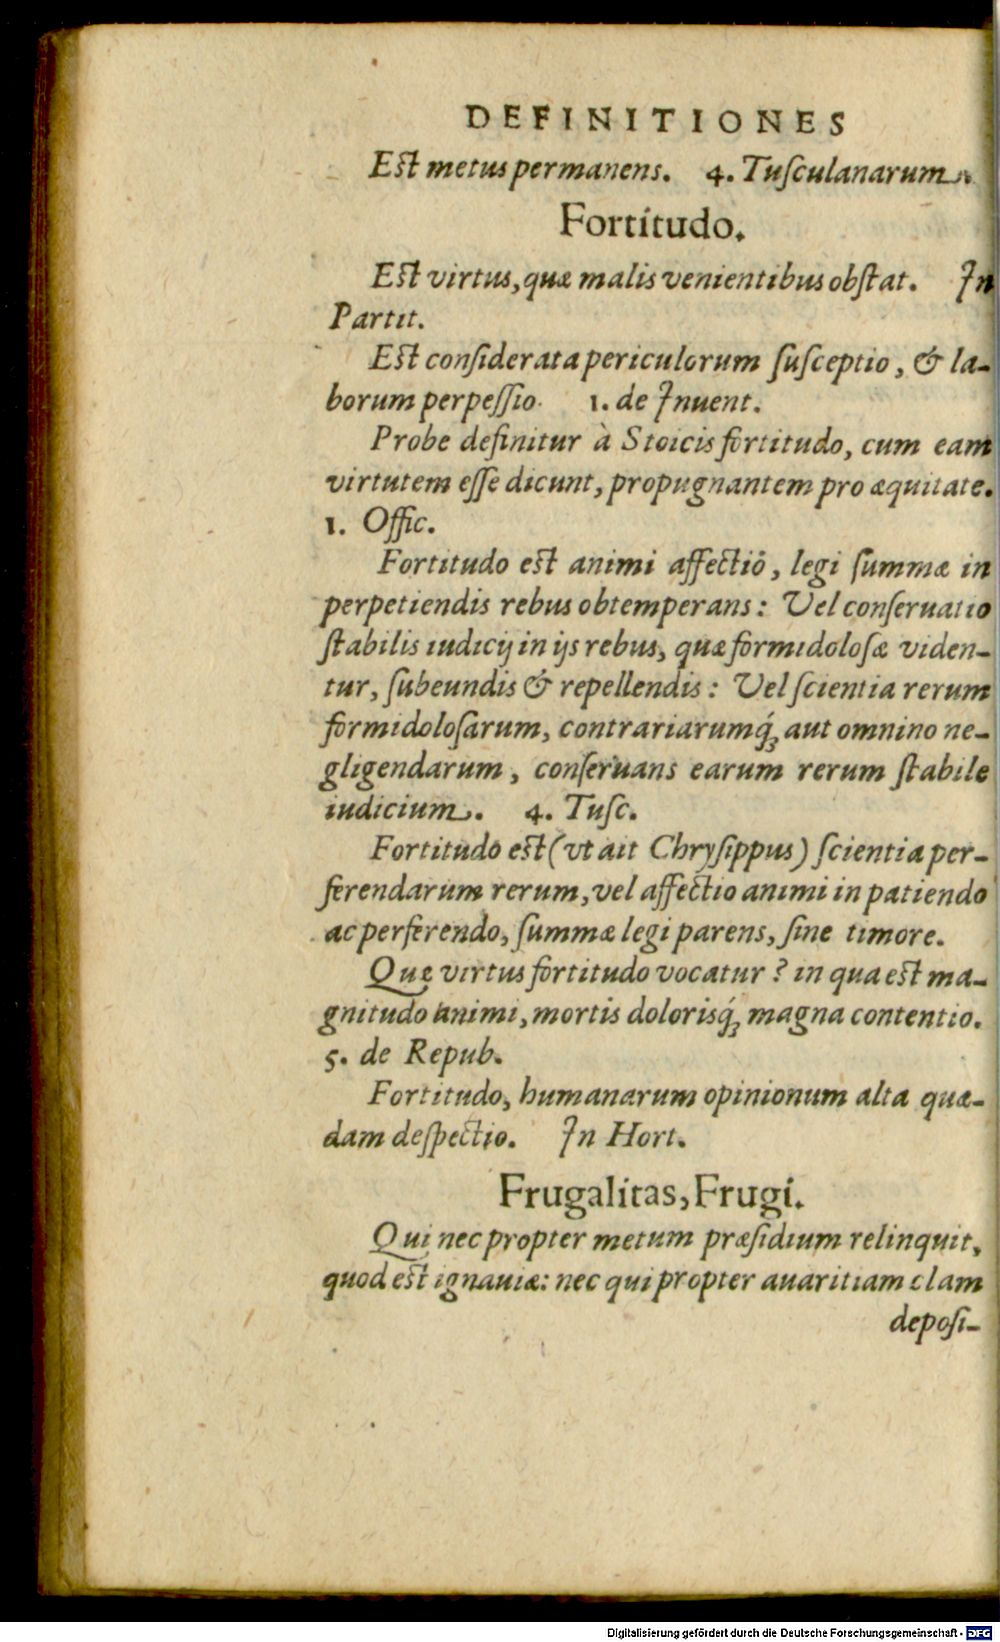 DEFINITIONES
Est metus permanens. 4. Tuſculanarum.
Fortitudo.
Est virtus, quæ malis venientibus obſtat. In
Partit.
Est conſiderata periculorum ſuſceptio, & la-
borum perpeſſio. 1. de Inuent.
Probe definitur à Stoicis fortitudo, cum eam
virtutem eſſe dicunt, propugnantem pro æquitate.
1. Offic.
Fortitudo est animi affectiō, legi ſummæ in
perpetiendis rebus obtemperans: Vel conſeruatio
ſtabilis iudicij in ijs rebus, quæ formidoloſæ viden-
tur, ſubeundis & repellendis: Vel ſcientia rerum
formidoloſarum, contrariarumq́; aut omnino ne-
gligendarum, conſeruans earum rerum ſtabile
iudicium. 4. Tuſc.
Fortitudo est (vt ait Chryſippus) ſcientia per-
ferendarum rerum, vel affectio animi in patiendo
ac perferendo, ſummæ legi parens, ſine timore.
Quæ virtus fortitudo vocatur? in qua est ma-
gnitudo animi, mortis dolorisq́; magna contentio.
5. de Repub.
Fortitudo, humanarum opinionum alta quæ-
dam deſpectio. In Hort.
Frugalitas, Frugi.
Qui nec propter metum præſidium relinquit,
quod est ignauiæ: nec qui propter auaritiam clam
depoſi-
Digitalisierung gefördert durch die Deutsche Forschungsgemeinschaft - DFG